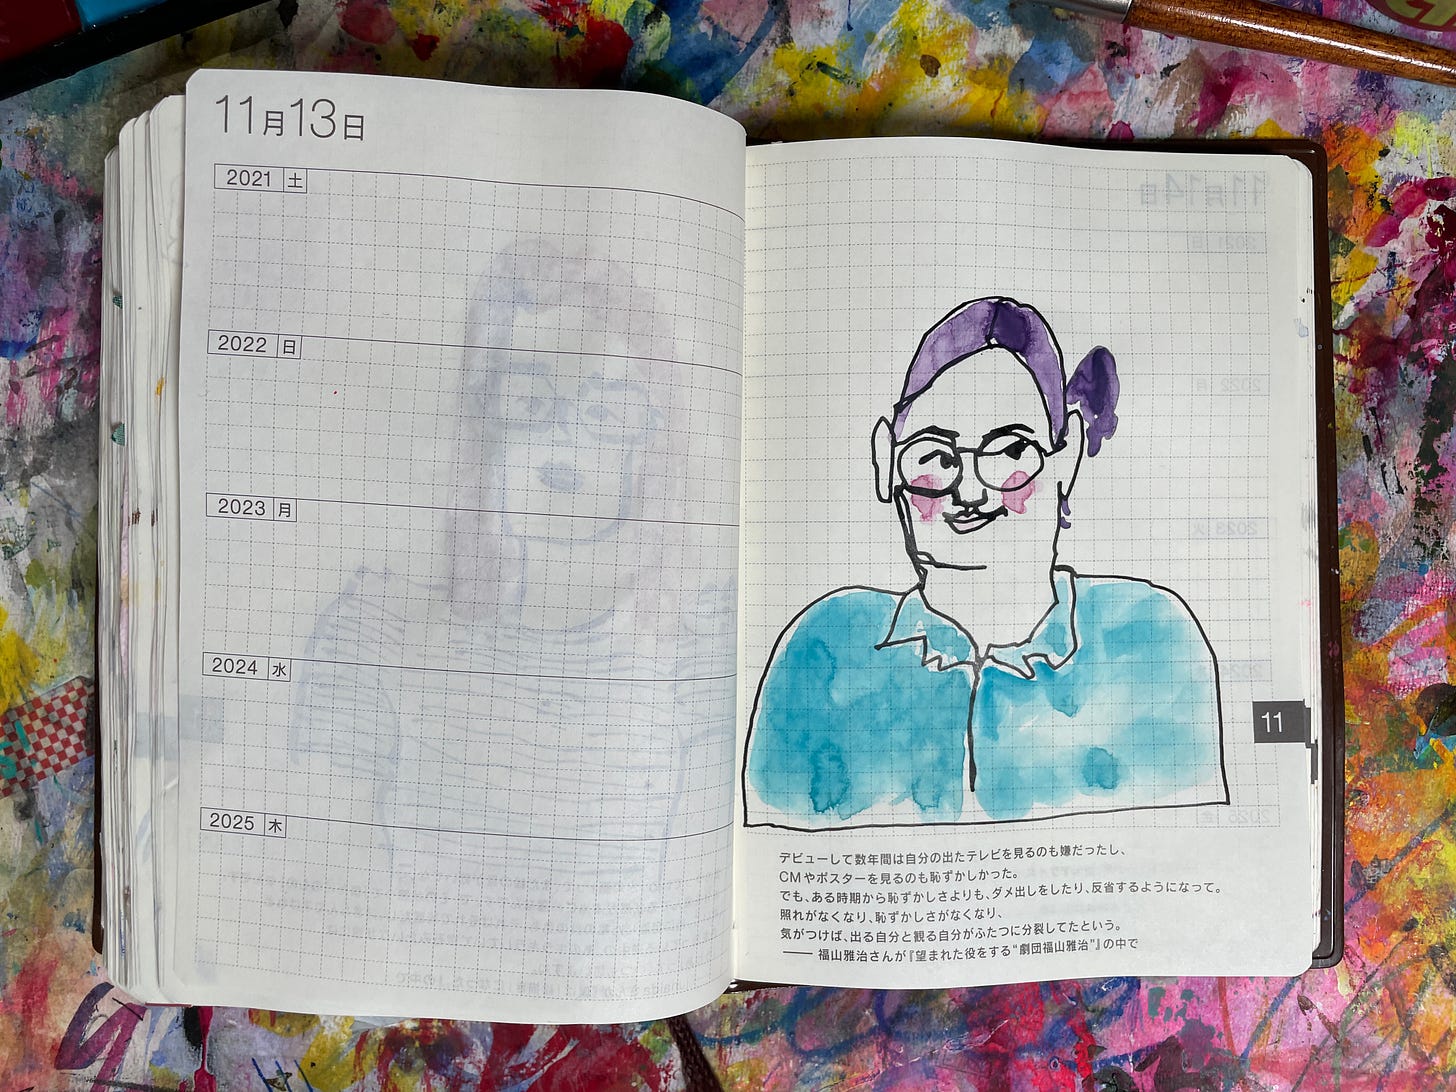 11月13日
2021 土
2022 日
2023 月
2024 水
2025 木
11月14日
2021 日
2022 月
2023 火
11
2026 金
デビューして数年間は自分の出たテレビを見るのも嫌だったし、
CMやポスターを見るのも恥ずかしかった。
でも、ある時期から恥ずかしさよりも、ダメ出しをしたり、反省するようになって。
照れがなくなり、恥ずかしさがなくなり、
気がつけば、出る自分と観る自分がふたつに分裂してたという。
—— 福山雅治さんが『望まれた役をする“劇団福山雅治”』の中で